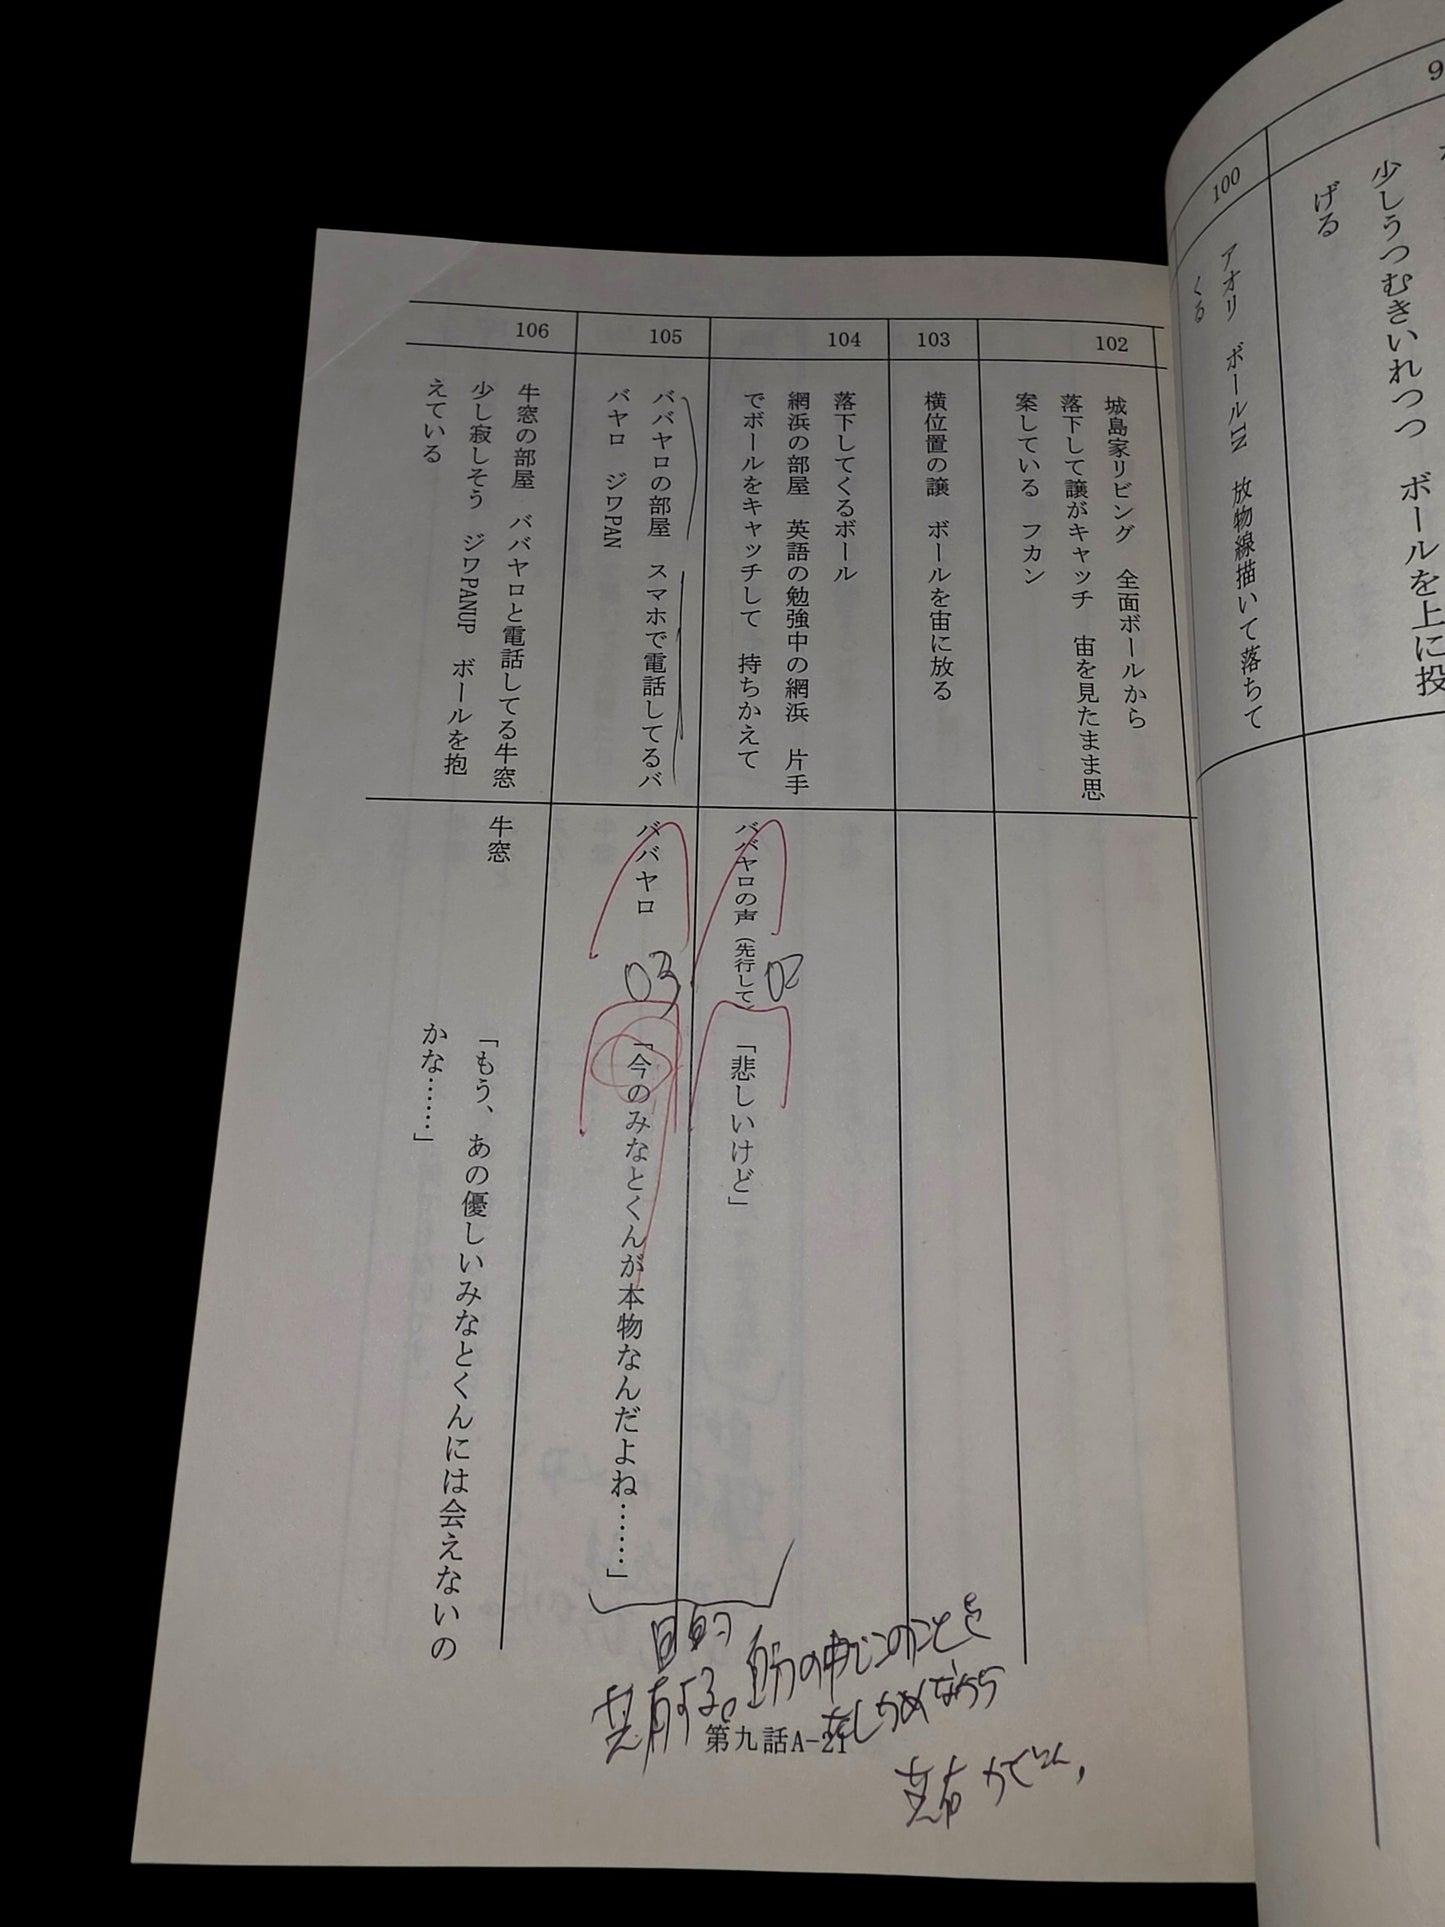 9
少しうつむきいれつつ　ボールを上に投
げる
100
アオリ　ボールIN　放物線描いて落ちて
くる
102
城島家リビング　全面ボールから
落下して譲がキャッチ　宙を見たまま思
案している　フカン
103
横位置の譲　ボールを宙に放る
104
落下してくるボール
網浜の部屋　英語の勉強中の網浜　片手
でボールをキャッチして　持ちかえて
ババヤロの声（先行して
02
「悲しいけど」
105
ババヤロの部屋　スマホで電話してるバ
バヤロ　ジワPAN
ババヤロ
03
「今のみなとくんが本物なんだよね……」
106
牛窓の部屋　ババヤロと電話してる牛窓
少し寂しそう　ジワPANUP　ボールを抱
えている
牛窓
「もう、あの優しいみなとくんには会えないの
かな……」
目的
共有する。自分の中でこのことを
たしかめながら
共有
第九話A-21